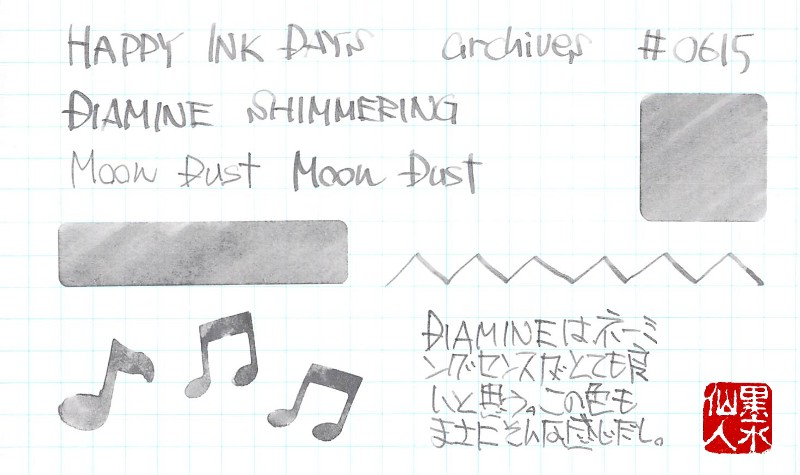 HAPPY INK DAYS archives #0615
DIAMINE SHIMMERING
Moon Dust Moon Dust
DIAMINEはネーミ
ングセンスがとても良
いと思う。この色も
まさにそんな感じだし。
墨水
仙人